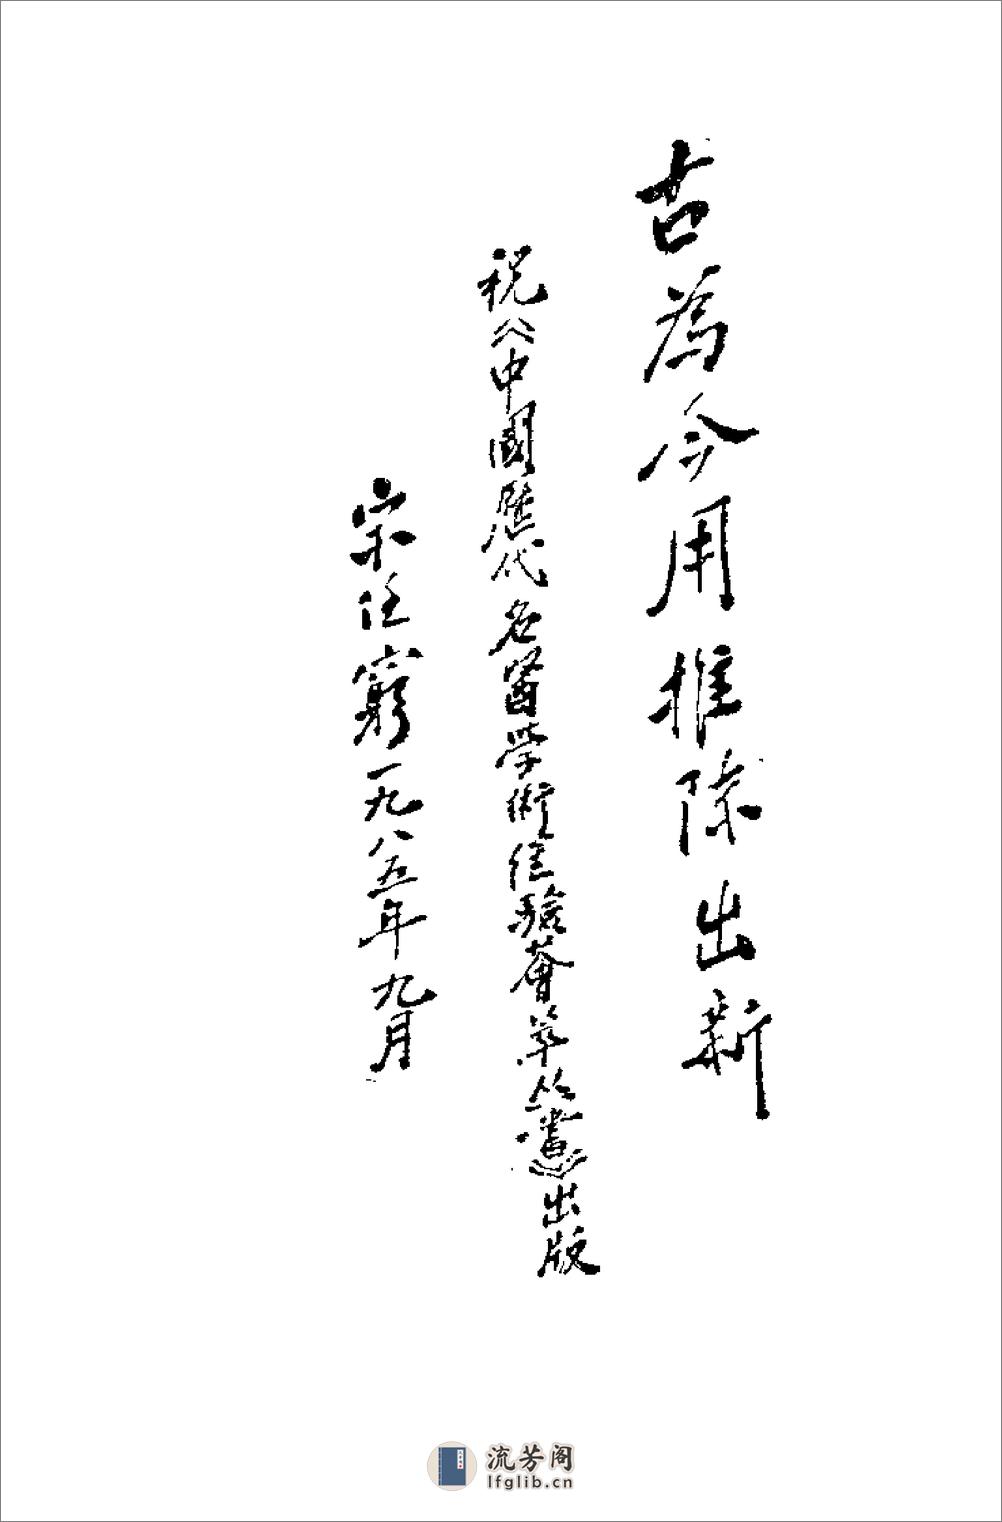 古為今用推陈出新
祝《中國歷代名醫学術经驗薈萃丛書》出版
宋任窮一九八五年九月
流芳阁
lfglib.cn